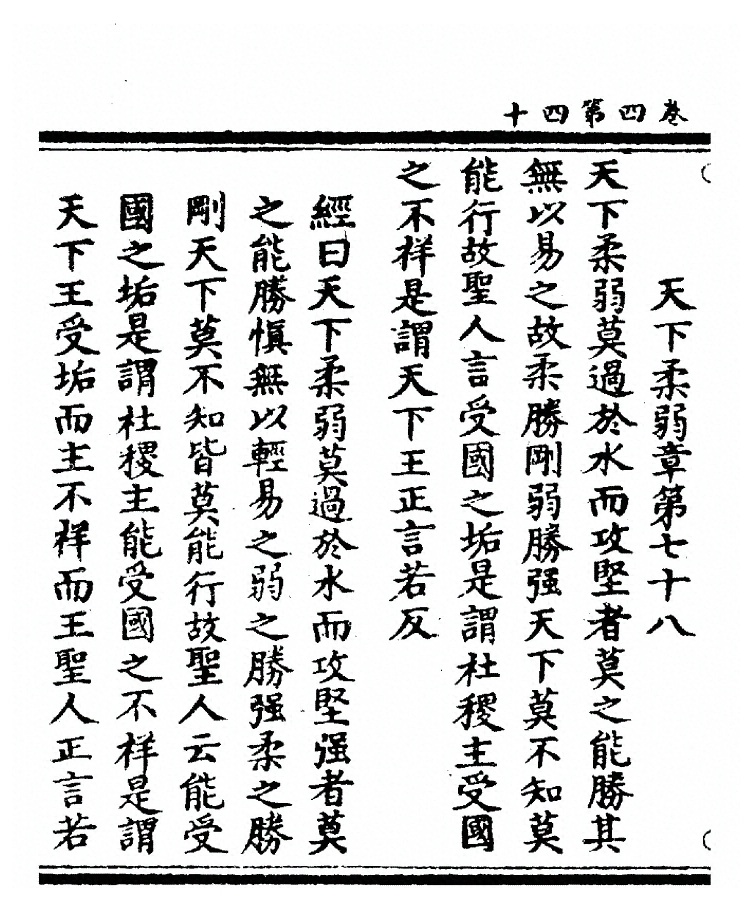 卷四第四十
天下柔弱章第七十八
天下柔弱莫過於水而攻堅者莫之能勝其
無以易之故柔勝剛弱勝强天下莫不知莫
能行故聖人言受國之垢是謂社稷主受國
之不祥是謂天下王正言若反
經曰天下柔弱莫過於水而攻堅强者莫
之能勝慎無以輕易之弱之勝强柔之勝
剛天下莫不知皆莫能行故聖人云能受
國之垢是謂社稷主能受國之不祥是謂
天下王受垢而主不祥而王聖人正言若